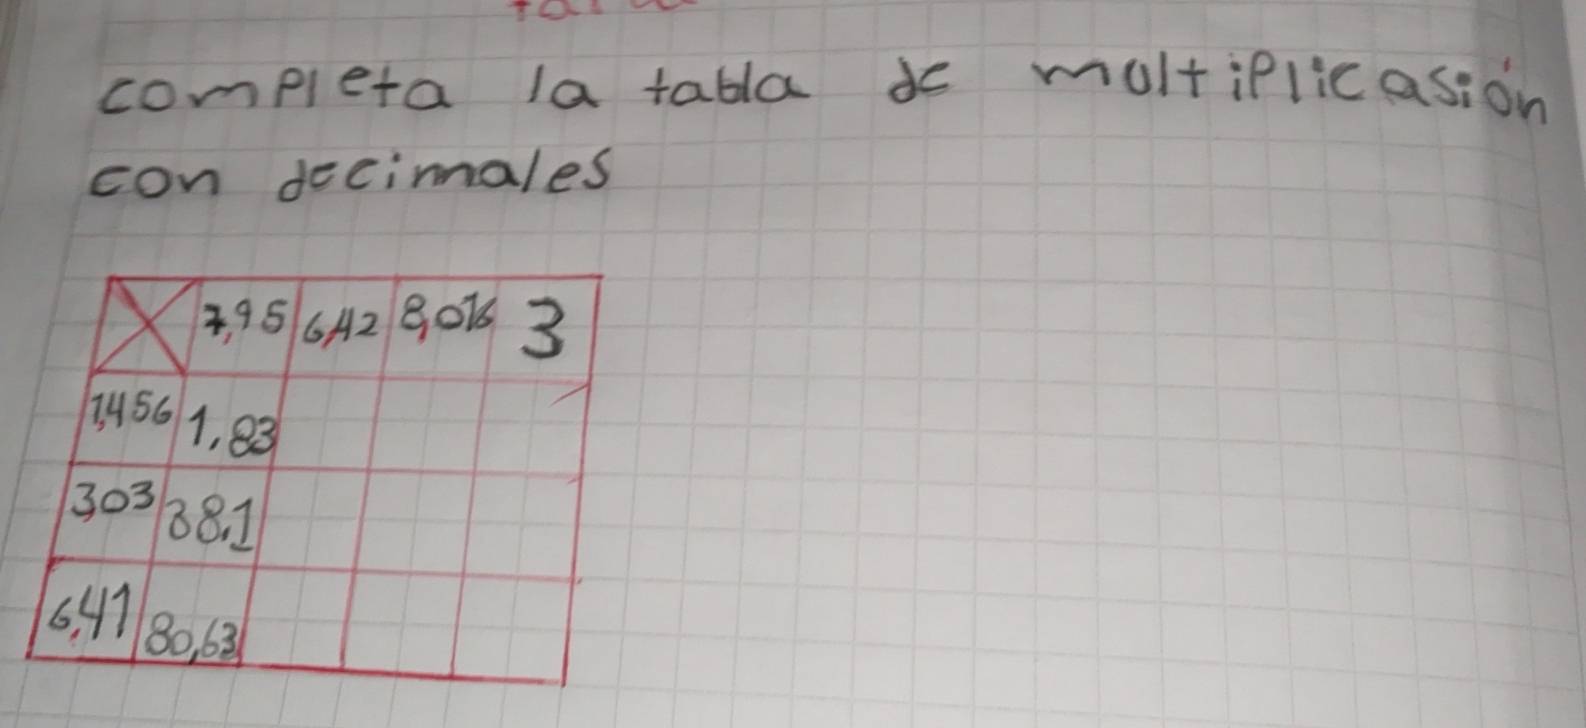 completa la tabla de multiplicasión
con decimales
7,95 6,42 8,016 3
1,456 1,83
3,03 38,1
6,41 80,63